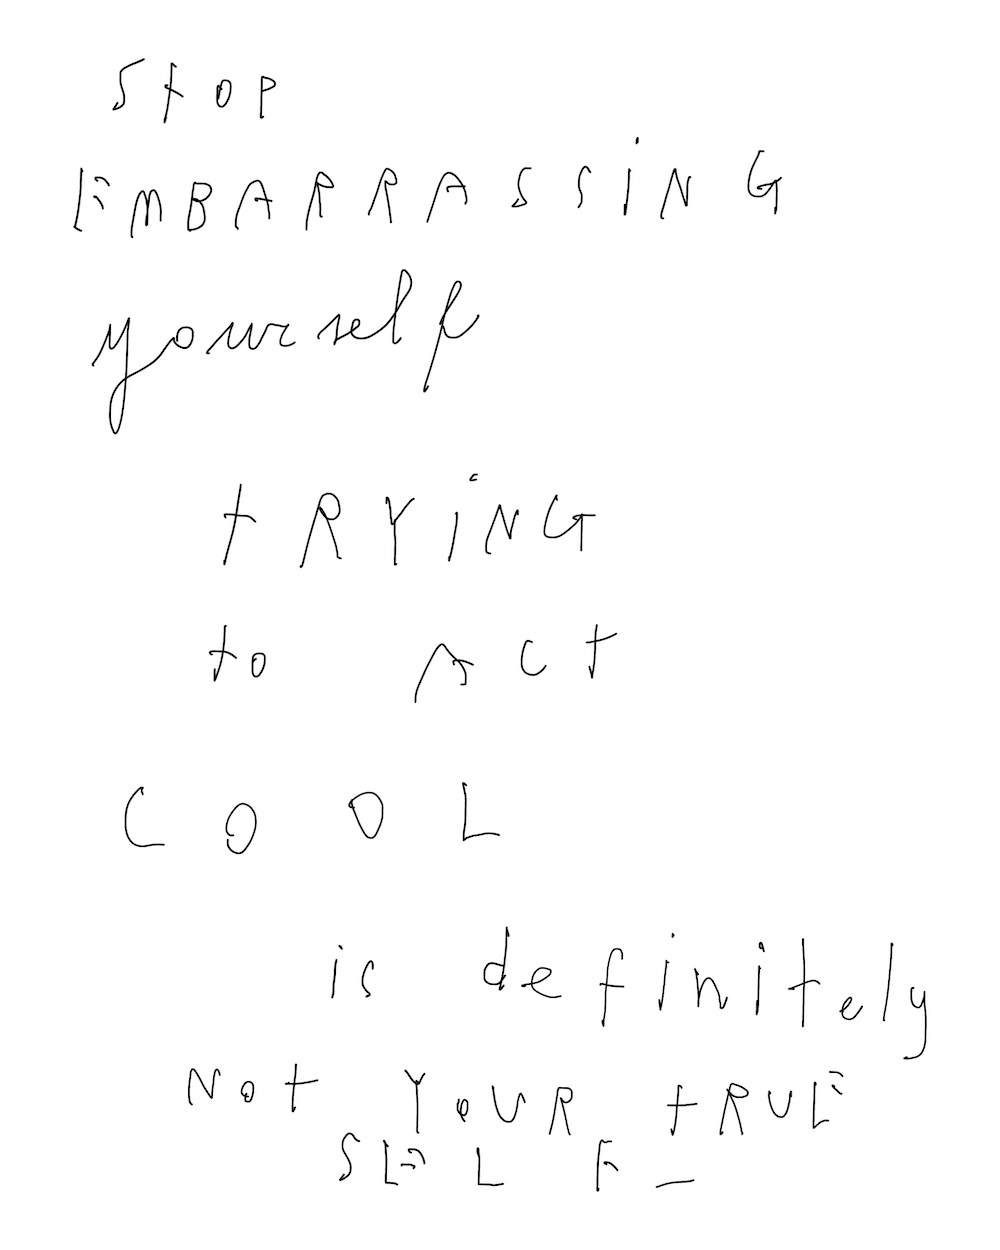 Stop
EMBARRASSiNG
yourself
tRYiNG
to ACt
COOL
is definitely
Not YOUR tRUE
SELF_